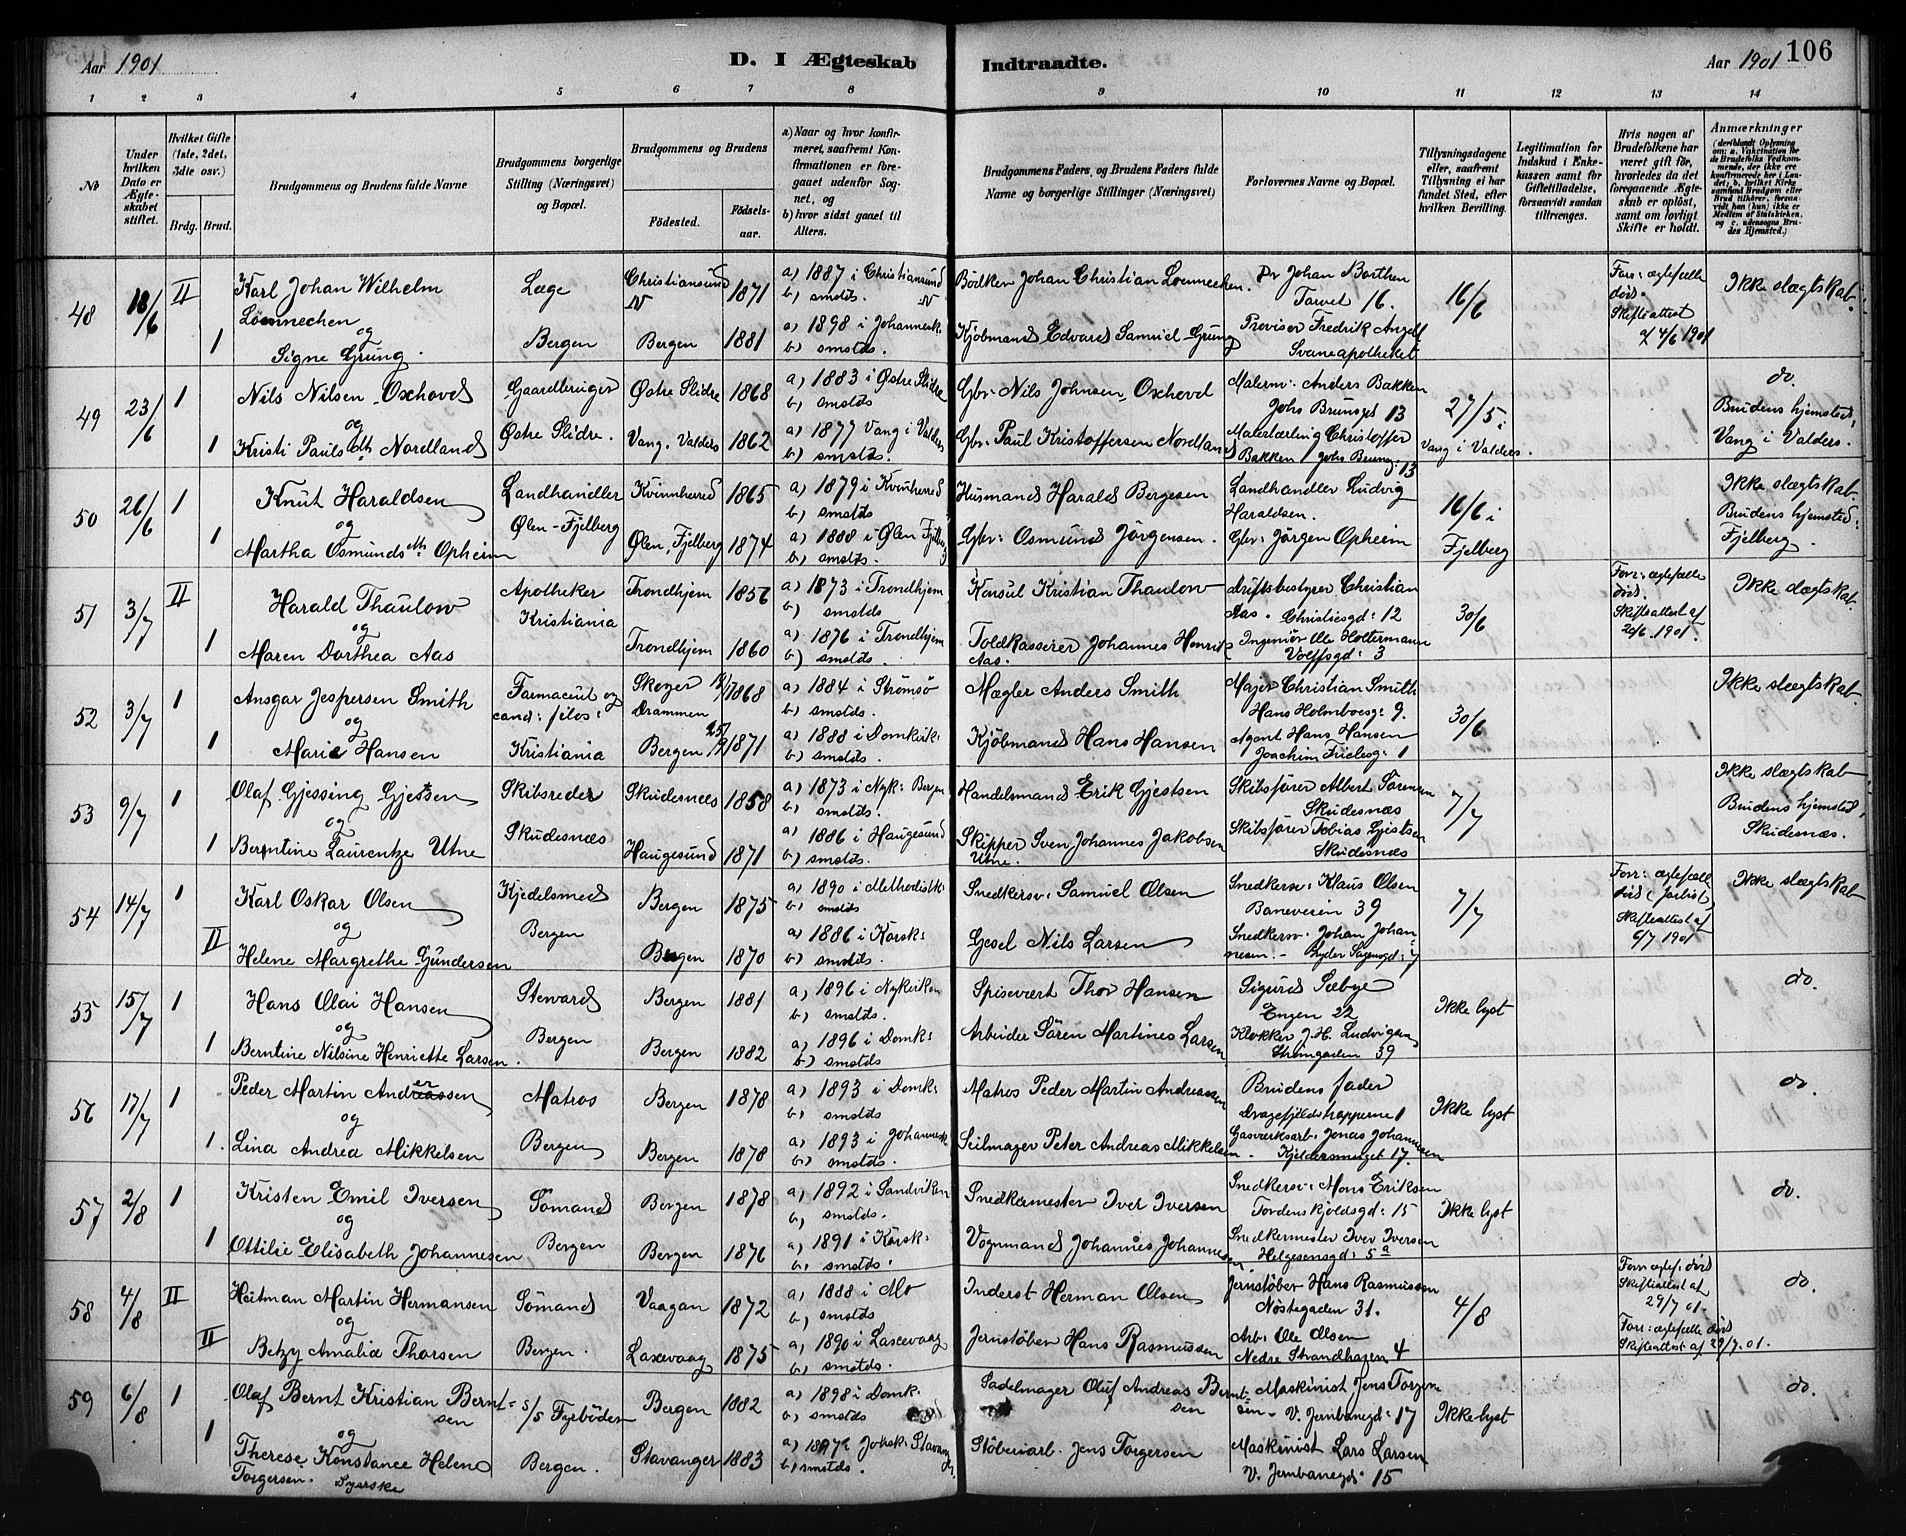 Aar 1901
D. I Ægteskab
Indtraadte.
Aar 1901
106
1 2 3 4 5 6 7 8 9 10 11 12 13 14
No
Under hvilken Dato er Ægteskabet stiftet.
Hvilket Gifte (1ste, 2det, 3die osv.)
Brdg. Brud.
Brudgommens og Brudens fulde Navne
Brudgommens borgerlige Stilling (Næringsvei) og Bopæl.
Brudgommens og Brudens
Fødested.
Fødselsaar.
a) Naar og hvor konfirmeret, saafremt Konfirmationen er foregaaet udenfor Sognet, og
b) hvor sidst gaaet til Alters.
Brudgommens Faders, og Brudens Faders fulde Navne og borgerlige Stillinger (Næringsvei)
Forlovernes Navne og Bopæl.
Tillysningsdagene eller, saafremt Tillysning ei har fundet Sted, efter hvilken Bevilling.
Legitimation for Indskud i Enkekassen samt for Giftetilladelse, forsaavidt saadan tiltrænges.
Hvis nogen af Brudefolkene har været gift før, hvorledes da det foregaaende Ægteskab er opløst, samt om lovligt Skifte er holdt.
Anmærkninger
48 18/6 II Karl Johan Wilhelm Læge Christiansund N 1871 a) 1887 i Christiansund N b) smstds. Bödker Johan Christian Loennechen. Dr Johan Barthen Torvet 16. 16/6 Forr: ægtefælle död. Skifteattest 4/6 1901 Ikke slægtskab.
Lönnechen
og
1 Signe Grung. Bergen Bergen 1881 a) 1898 i Johannesk. b) smstds. Kjöbmand Edvard Samuel Grung Provisor Fredrik Angell Svaneapotheket
49 23/6 1 Nils Nilsen Oxhovd Gaardbruger Östre Slidre 1868 a) 1883 i Östre Slidre b) smstds Gbr. Nils Johnsen Oxhovd Malerm: Anders Bakken Johs Brunsgt 13 27/5 i Vang i Valders. do.
og
1 Kristi Paulsdtr Nordland Östre Slidre. Vang. Valders 1862 a) 1877 Vang i Valders b) smstds. Gbr. Paul Kristoffersen Nordland Malerlærling Christoffer Bakken Johs Brunsg: 13 Brudens hjemsted: Vang i Valders.
50 26/6 1 Knut Haraldsen Landhandler Kvinnherred 1865 a) 1879 i Kvinherred b) smstds Husmand Harald Bergesen Landhandler Ludvig Haraldsen. 16/6 i Fjelberg Ikke slægtskab
og
1 Martha Osmundsdtr Opheim Ölen-Fjelberg Ölen, Fjelberg 1874 a) 1888 i Ölen Fjelberg b) smstds. Gbr: Osmund Jörgensen. Gbr: Jörgen Opheim Brudens hjemsted: Fjelberg.
51 3/7 II Harald Thaulow Apotheker Trondhjem 1856 a) 1873 i Trondhjem b) smstds Konsul Kristian Thaulow driftsbestyrer Christian Aas. Christiesgd: 12 30/6 Forr: ægtefælle död. Skifteattest af 24/6 1901. Ikke slægtskab.
og
1 Maren Dorthea Aas Kristiania Trondhjem 1860 a) 1876 i Trondhjem b) smstds. Toldkasserer Johannes Henrik Aas. Ingeniör Ole Holtermann Volffsgd: 3
52 3/7 1 Ansgar Jespersen Smith Farmaceut og cand: filos: Skoger Drammen 1868 a) 1884 i Strömsö b) smstds. Mægler Anders Smith Major Christian Smith Hans Holmboesg: 9. 30/6 Ikke slægtskab.
og
1 Marie Hansen Kristiania Bergen 1871 a) 1888 i Domkirk: b) smstds. Kjöbmand Hans Hansen Agent Hans Hansen Joachim Frielesg: 1
53 9/7 1 Olaf Gjessing Gjestsen Skibsreder Skudesnæs 1858 a) 1873 i Nyk: Bergen b) smstds. Handelsmand Erik Gjestsen Skibsförer Albert Sörensen Skudesnæs 7/7 Ikke slægtskab
og
1 Berntine Laurentze Utne Skudesnæs Haugesund 1871 a) 1886 i Haugesund b) smstds. Skipper Sven Johannes Jakobsen Utne. Skibsförer Tobias Gjestsen Skudesnæs Brudens hjemsted: Skudenæs.
54 14/7 1 Karl Oskar Olsen Kjedelsmed Bergen 1875 a) 1890 i Methodistk: b) smstds Snedkersv: Samuel Olsen Snedkersv: Klaus Olsen Baneveien 39 7/7 Forr: ægtefælle död Skifteattest af 6/7 1901 Ikke slægtskab
og
II Helene Margrethe Gundersen Bergen Bergen 1870 a) 1886 i Korsk: b) smstds. Gesel Nils Larsen Snedkersv. Johan Johannesen. - Lyder Sagensgd: 7
55 15/7 1 Hans Olai Hansen Steward Bergen 1881 a) 1896 i Nykirken b) smstds. Spisevært Thor Hansen Sigurd Sæbye Engen 22 Ikke lyst do.
og
1 Berntine Nilsine Henriette Larsen. Bergen Bergen 1882 a) 1896 i Domk: b) smstds Arbeider Sören Martines Larsen Klokker J. H. Ludvigsen Strömgaden 39
56 17/7 1 Peder Martin Andreassen Matros Bergen 1878 a) 1893 i Domk: b) smstds Matros Peder Martin Andreassen Brudens fader Dragefjeldstrapperne 1 Ikke lyst do
og
1. Lina Andrea Mikkelsen Bergen Bergen 1878 a) 1893 i Johannesk b) smstds. Seilmager Peter Andreas Mikkelsen. Gasværksarb: Jonas Johannesen Kjeldersmuget 17.
57 2/8 1 Kristen Emil Iversen Sömand Bergen 1878 a) 1892 i Sandviken b) smstds. Snedkermester Iver Iversen Snedkersv: Mons Eriksen Tordenskjoldsgd: 15 Ikke lyst do.
og
1 Ottilie Elisabeth Johannesen Bergen Bergen 1876 a) 1891 i Korsk: b) smstds. Vognmand Johannes Johannesen Snedkermester Iver Iversen Helgesensgd: 5a
58 4/8 II Heitman Martin Hermansen Sömand Vaagan 1872 a) 1888 i Mo b) smstds Inderst Herman Olsen Jernstöber Hans Rasmussen Nöstegaden 31. 4/8 Forr ægtef: död Skifteattest af 29/7 01. do.
og
II Betzy Amalia Thorsen Bergen. Laxevaag 1875 a) 1890 i Laxevaag b) smstds. Jernstöber Hans Rasmussen Arb: Ole Olsen Nedre Strandhagen 4 Forr: ægtefælle död Skifteattest af 29/7.01.
59 6/8 1 Olaf Bernt Kristian Berntsen s/s Fyrböder Bergen 1882 a) 1898 i Domk. b) smstds Sadelmager Oluf Andreas Berntsen Maskinist Jens Torgersen V. Jernbanegd: 17 Ikke lyst do.
og
1 Therese Konstance Helene Torgersen. Syerske Bergen. Stavanger 1883 a) 1897 i Johsk. Stavanger b) smstds. Stöberiarb. Jens Torgersen Maskinist Lars Larsen V. Jernbanegd. 15